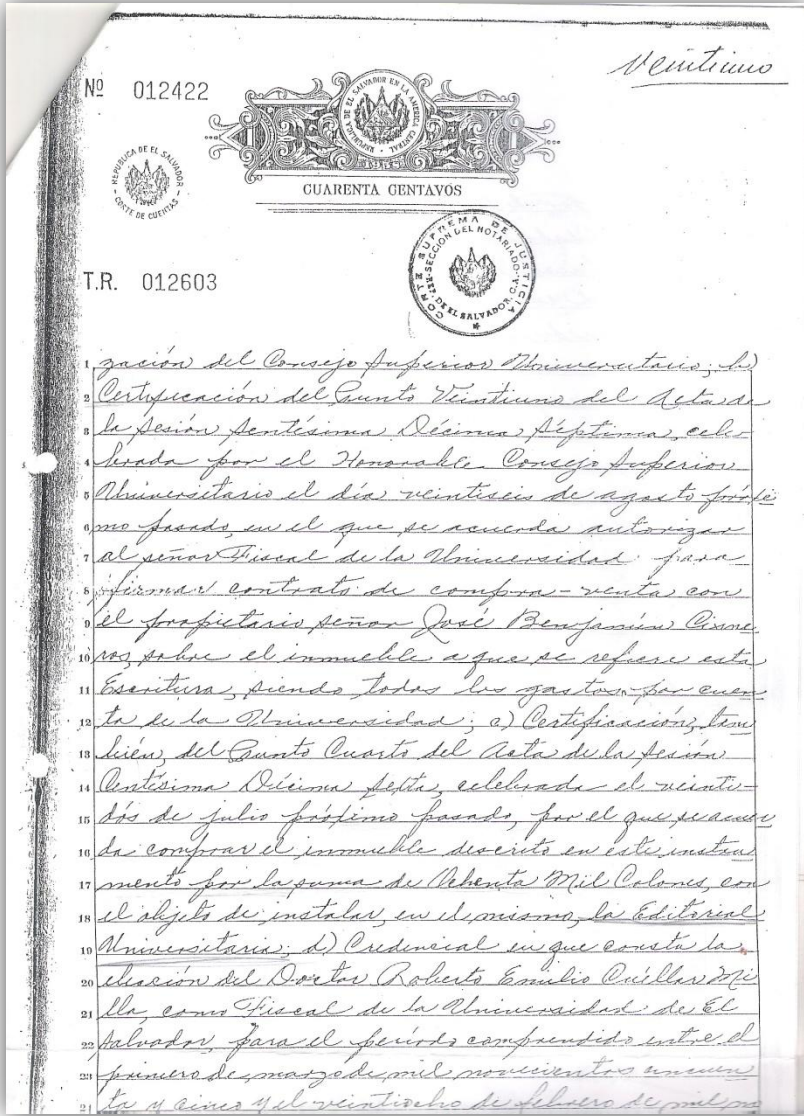 Veintiuno
Nº 012422
REPUBLICA DE EL SALVADOR EN LA AMERICA CENTRAL
REPUBLICA DE EL SALVADOR
CORTE DE CUENTAS
CUARENTA CENTAVOS
CORTE SUPREMA DE JUSTICIA
SECCIÓN DEL NOTARIADO
REP. DE EL SALVADOR, C.A.
T.R. 012603
1 zación del Consejo Superior Universitario; b)
2 Certificación del Punto Veintiuno del Acta de
3 la Sesión Sentésima Décima Séptima, cele-
4 brada por el Honorable Consejo Superior
5 Universitario el día veintiseis de agosto próxi
6 mo pasado, en el que se acuerda autorizar
7 al señor Fiscal de la Universidad para
8 firmar contrato de compra-venta con
9 el propietario señor José Benjamín Cisne
10 ros, sobre el inmueble a que se refiere esta
11 Escritura, siendo todos los gastos por cuen
12 ta de la Universidad; c) Certificación, tam
13 bién, del Punto Cuarto del Acta de la Sesión
14 Centésima Décima Sexta, celebrada el veinti-
15 dós de julio próximo pasado, por el que se acuer
16 da comprar el inmueble descrito en este instru
17 mento por la suma de Ochenta Mil Colones, con
18 el objeto de instalar, en el mismo, la Editorial
19 Universitaria; d) Credencial en que consta la
20 elección del Doctor Roberto Emilio Cuéllar Mi
21 lla, como Fiscal de la Universidad de El
22 Salvador, para el período comprendido entre el
23 primero de marzo de mil novecientos cincuen
24 ta y cinco y el veintiocho de febrero de mil no